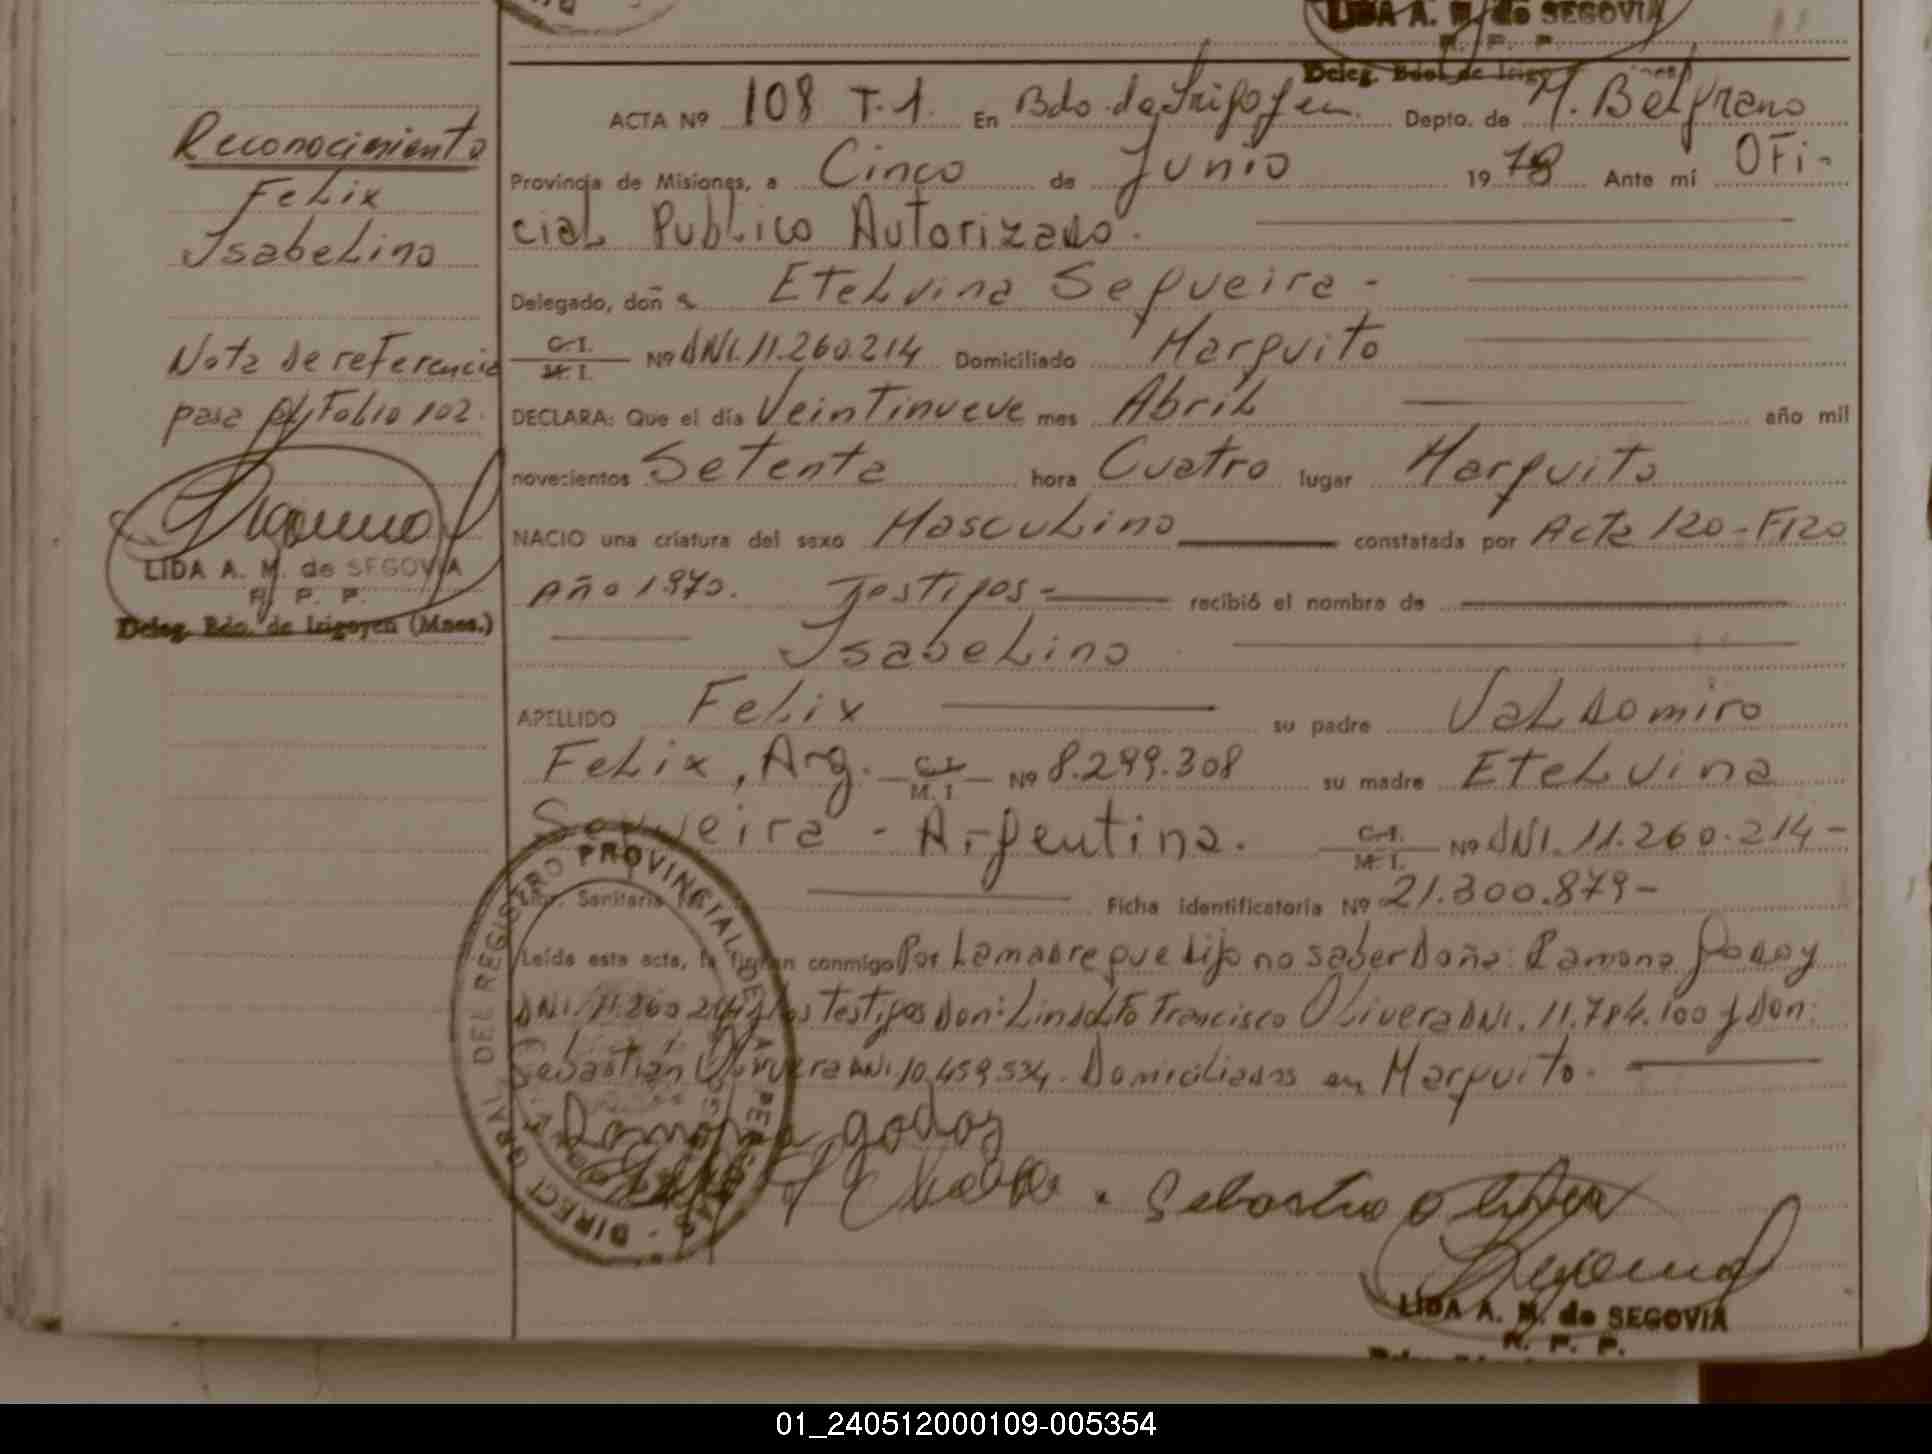 LIDA A. M. de SEGOVIA
R. P. P.
Deleg. Bdo. de Irigoyen (Mnes.)
ACTA Nº 108 T.1. En Bdo. de Irigoyen. Depto. de M. Belgrano
Provincia de Misiones, a Cinco de Junio 1978 Ante mí OFi-
cial Publico Autorizado.
Delegado, doña Etelvina Sequeira -
C.I. M.I. Nº DNI. 11.260.214 Domiciliado Marquito
DECLARA: Que el día Veintinueve mes Abril año mil
novecientos Setenta hora Cuatro lugar Marquito
NACIO una criatura del sexo Masculino constatada por Acta 120-F120
Año 1970. Testigos - recibió el nombre de
Isabelino
APELLIDO Felix su padre Valdomiro
Felix, Arg. C.I. M.I. Nº 8.299.308 su madre Etelvina
Sequeira - Argentina. C.I. M.I. Nº DNI. 11.260.214 -
Libr. Sanitaria Nº Ficha identificatoria Nº 21.300.879 -
Leída esta acta, la firman conmigo Por La madre que dijo no saber Doña: Ramona Godoy
DNI. 11.260.214 Los Testigos Don: Lindolfo Francisco Olivera DNI. 11.784.100 y Don:
Sebastian Olivera DNI. 10.459.534. Domiciliados en Marquito.
Ramona godoy
Sebastiao Olivera
LIDA A. M. de SEGOVIA
R. P. P.
Reconocimiento
Felix
Isabelino
Nota de referencia
pasa al Folio 102.
LIDA A. M. de SEGOVIA
R. P. P.
Deleg. Bdo. de Irigoyen (Mnes.)
DIRECC. GRAL. DEL REGISTRO PROVINCIAL DE LAS PERSONAS
01_240512000109-005354